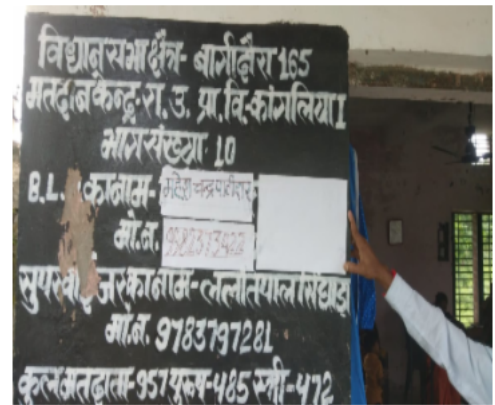 विधानसभा क्षेत्र- बागीदौरा 165
मतदान केन्द्र- रा. उ. प्रा. वि. कांगलिया I
भाग संख्या 10
B.L. का नाम- महेश चन्द्र पाटीदार
मो.न.
सुपरवाईजर का नाम- ललीतपाल सिंघाडा
मो.न. 9783797281
कुल मतदाता-957 पुरूष-485 स्त्री-472